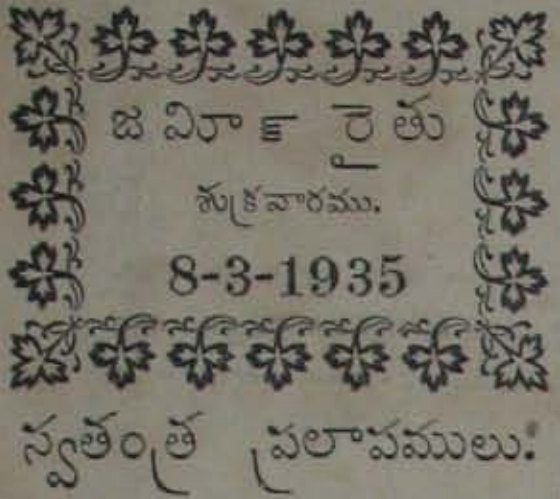 జమీన్ రైతు
శుక్రవారము.
8-3-1935
స్వతంత్ర ప్రలాపములు: